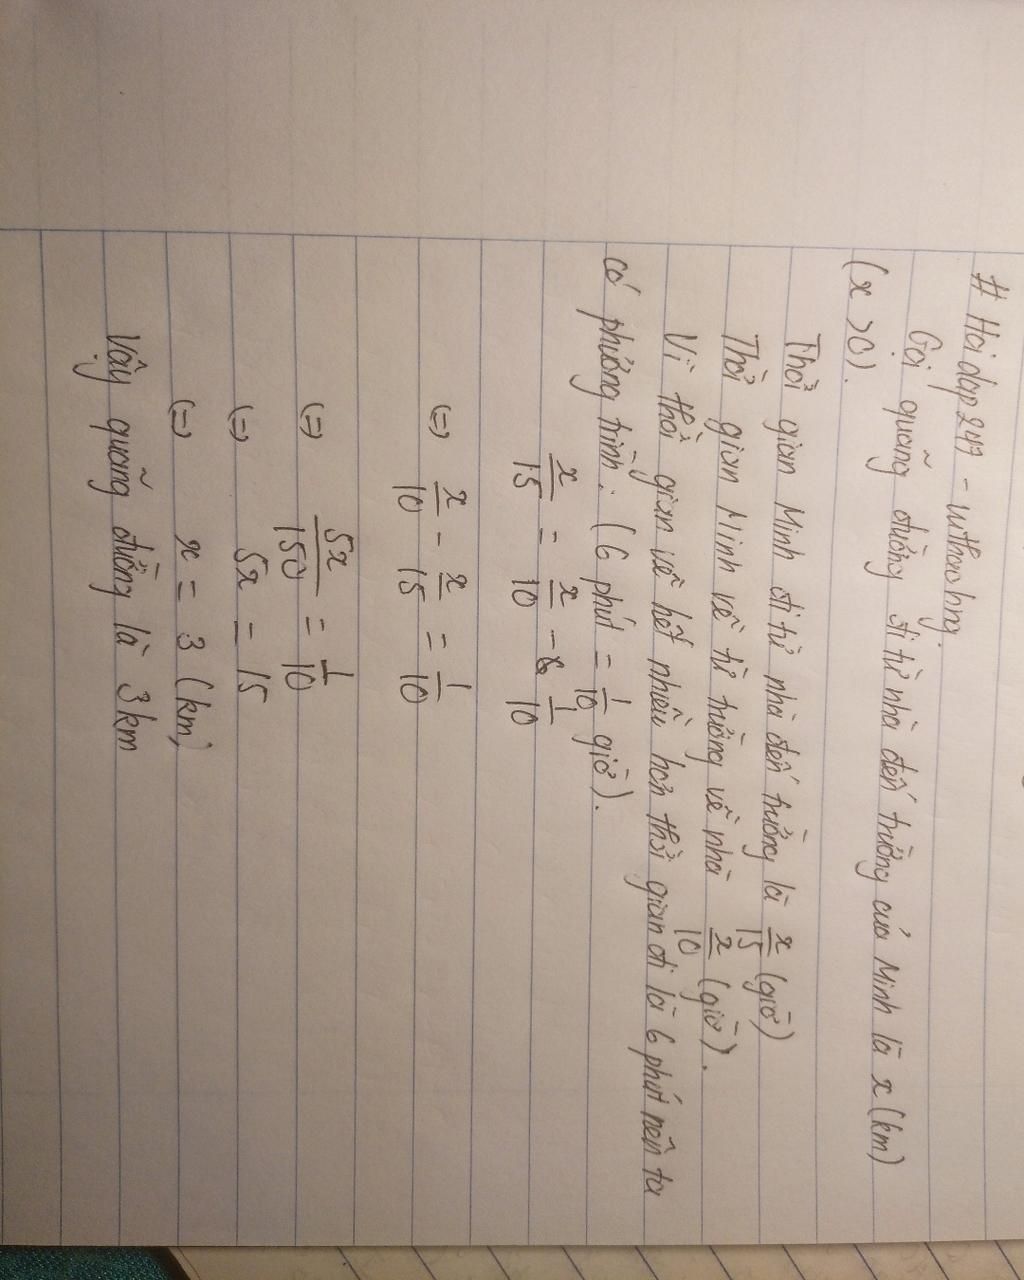 # Hoidap247 - nthaohng
Gọi quãng đường đi từ nhà đến trường của Minh là x (km)
(x > 0).
Thời gian Minh đi từ nhà đến trường là x/15 (giờ)
Thời gian Minh về từ trường về nhà x/10 (giờ).
Vì thời gian về hết nhiều hơn thời gian đi là 6 phút nên ta
có phương trình: (6 phút = 1/10 giờ).
x/15 = x/10 - 1/10
(=) x/10 - x/15 = 1/10
(=) 5x/150 = 1/10
(=) 5x = 15
(=) x = 3 (km)
Vậy quãng đường là 3km